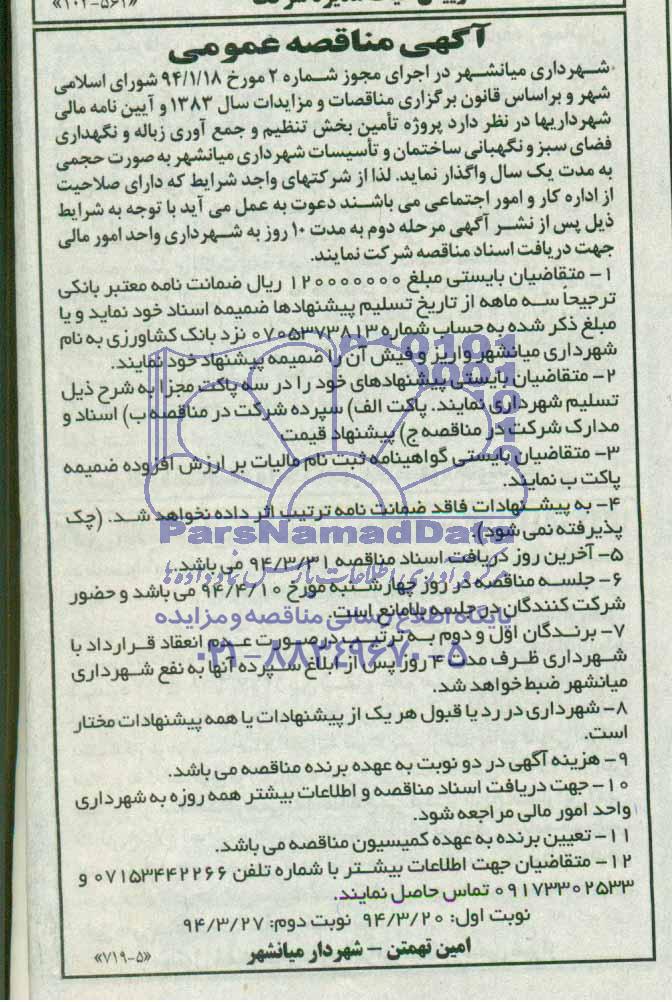 «۱۰۲-۵۶۱»
آگهی مناقصه عمومی
شهرداری میانشهر در اجرای مجوز شماره ۲ مورخ ۹۴/۱/۱۸ شورای اسلامی
شهر و براساس قانون برگزاری مناقصات و مزایدات سال ۱۳۸۳ و آیین نامه مالی
شهرداریها در نظر دارد پروژه تأمین بخش تنظیم و جمع آوری زباله و نگهداری
فضای سبز و نگهبانی ساختمان و تأسیسات شهرداری میانشهر به صورت حجمی
به مدت یک سال واگذار نماید. لذا از شرکتهای واجد شرایط که دارای صلاحیت
از اداره کار و امور اجتماعی می باشند دعوت به عمل می آید با توجه به شرایط
ذیل پس از نشر آگهی مرحله دوم به مدت ۱۰ روز به شهرداری واحد امور مالی
جهت دریافت اسناد مناقصه شرکت نمایند.
۱- متقاضیان بایستی مبلغ ۱۲۰۰۰۰۰۰۰ ریال ضمانت نامه معتبر بانکی
ترجیحاً سه ماهه از تاریخ تسلیم پیشنهادها ضمیمه اسناد خود نماید و یا
مبلغ ذکر شده به حساب شماره ۰۷۰۵۳۷۳۸۱۳ نزد بانک کشاورزی به نام
شهرداری میانشهر واریز و فیش آن را ضمیمه پیشنهاد خود نمایند.
۲- متقاضیان بایستی پیشنهادهای خود را در سه پاکت مجزا به شرح ذیل
تسلیم شهرداری نمایند. پاکت الف) سپرده شرکت در مناقصه ب) اسناد و
مدارک شرکت در مناقصه ج) پیشنهاد قیمت
۳- متقاضیان بایستی گواهینامه ثبت نام مالیات بر ارزش افزوده ضمیمه
پاکت ب نمایند.
۴- به پیشنهادات فاقد ضمانت نامه ترتیب اثر داده نخواهد شد. (چک
پذیرفته نمی شود).
ParsNamadData
۵- آخرین روز دریافت اسناد مناقصه ۹۴/۳/۳۱ می باشد.
۶- جلسه مناقصه در روز چهارشنبه مورخ ۹۴/۴/۱۰ می باشد و حضور
شرکت کنندگان در جلسه بلامانع است.
پایگاه اطلاع رسانی مناقصه و مزایده
۷- برندگان اوّل و دوم به ترتیب درصورت عدم انعقاد قرارداد با
شهرداری ظرف مدت ۴ روز پس از ابلاغ سپرده آنها به نفع شهرداری
۰۲۱-۸۸۳۴۹۶۷۰-۵
میانشهر ضبط خواهد شد.
۸- شهرداری در رد یا قبول هر یک از پیشنهادات یا همه پیشنهادات مختار
است.
۹- هزینه آگهی در دو نوبت به عهده برنده مناقصه می باشد.
۱۰- جهت دریافت اسناد مناقصه و اطلاعات بیشتر همه روزه به شهرداری
واحد امور مالی مراجعه شود.
۱۱- تعیین برنده به عهده کمیسیون مناقصه می باشد.
۱۲- متقاضیان جهت اطلاعات بیشتر با شماره تلفن ۰۷۱۵۳۴۴۲۲۶۶ و
۰۹۱۷۳۳۰۲۵۳۳ تماس حاصل نمایند.
نوبت اول: ۹۴/۳/۲۰ نوبت دوم: ۹۴/۳/۲۷
امین تهمتن - شهردار میانشهر
«۷۱۹-۵»